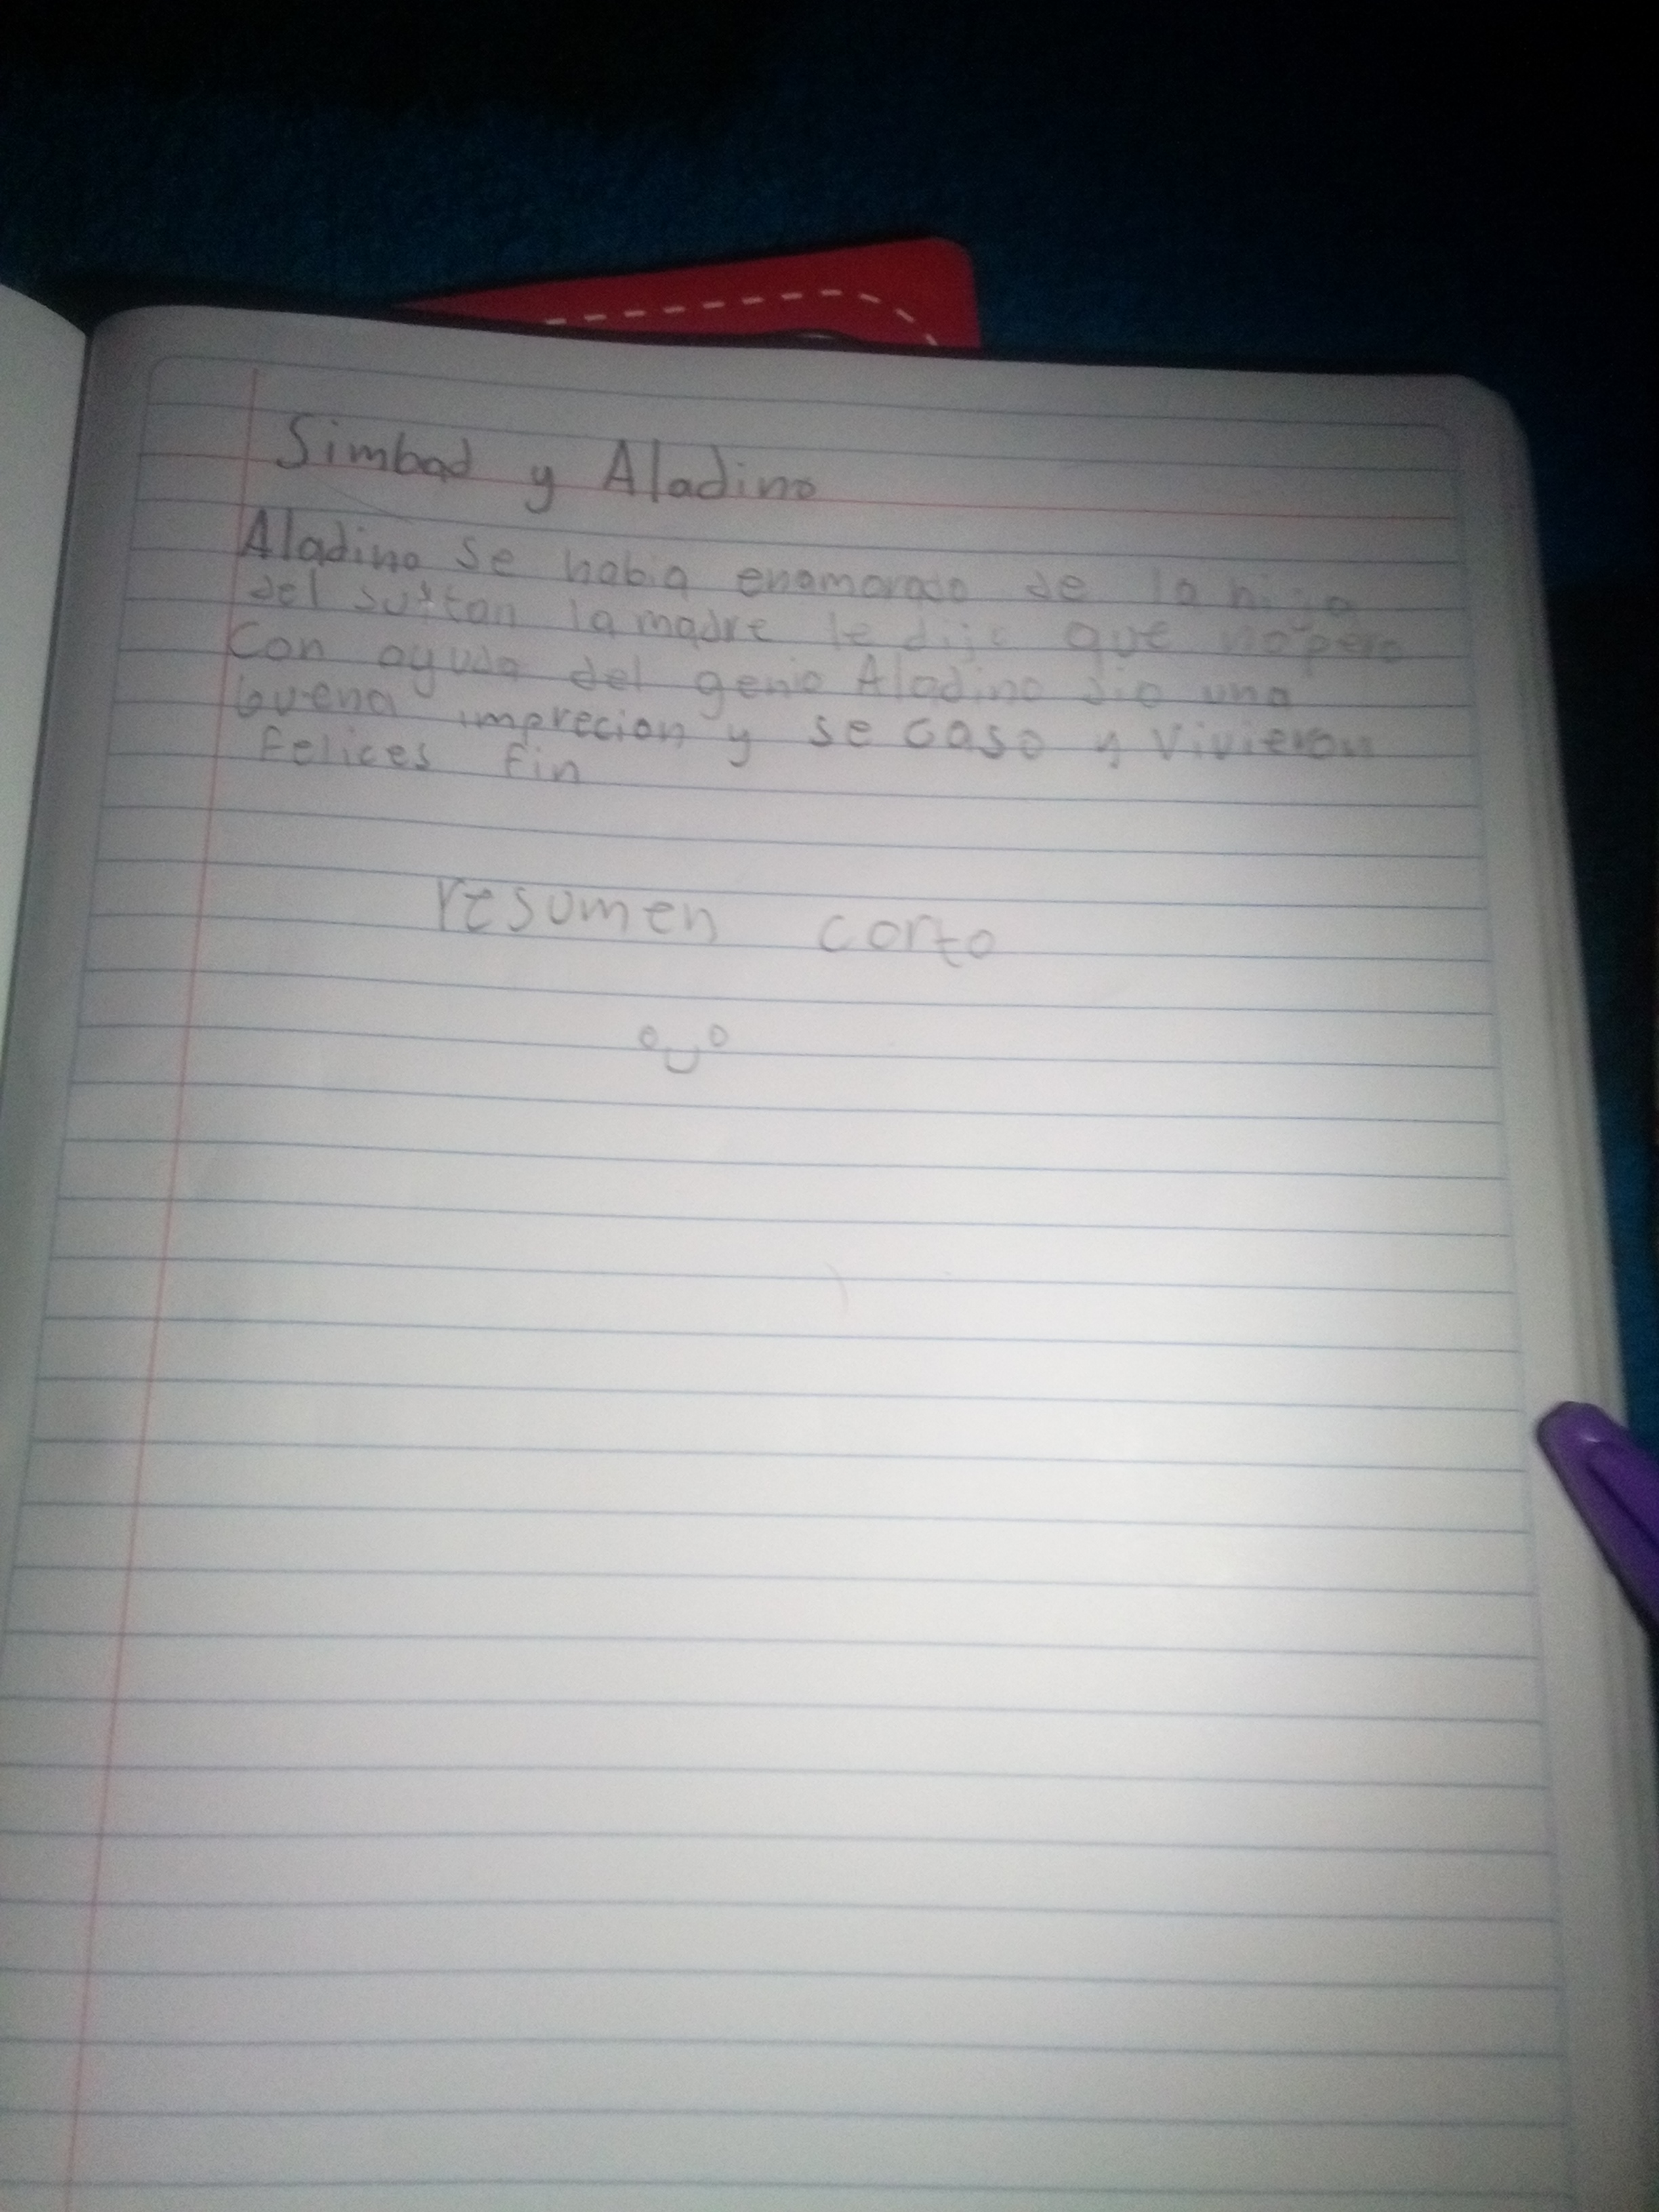 Simbad y Aladino
Aladino se habia enamorado de la hija
del sultan la madre le dijo que no pero
Con ayuda del genio Aladino dio una
buena imprecion y se caso y vivieron
felices fin
resumen corto